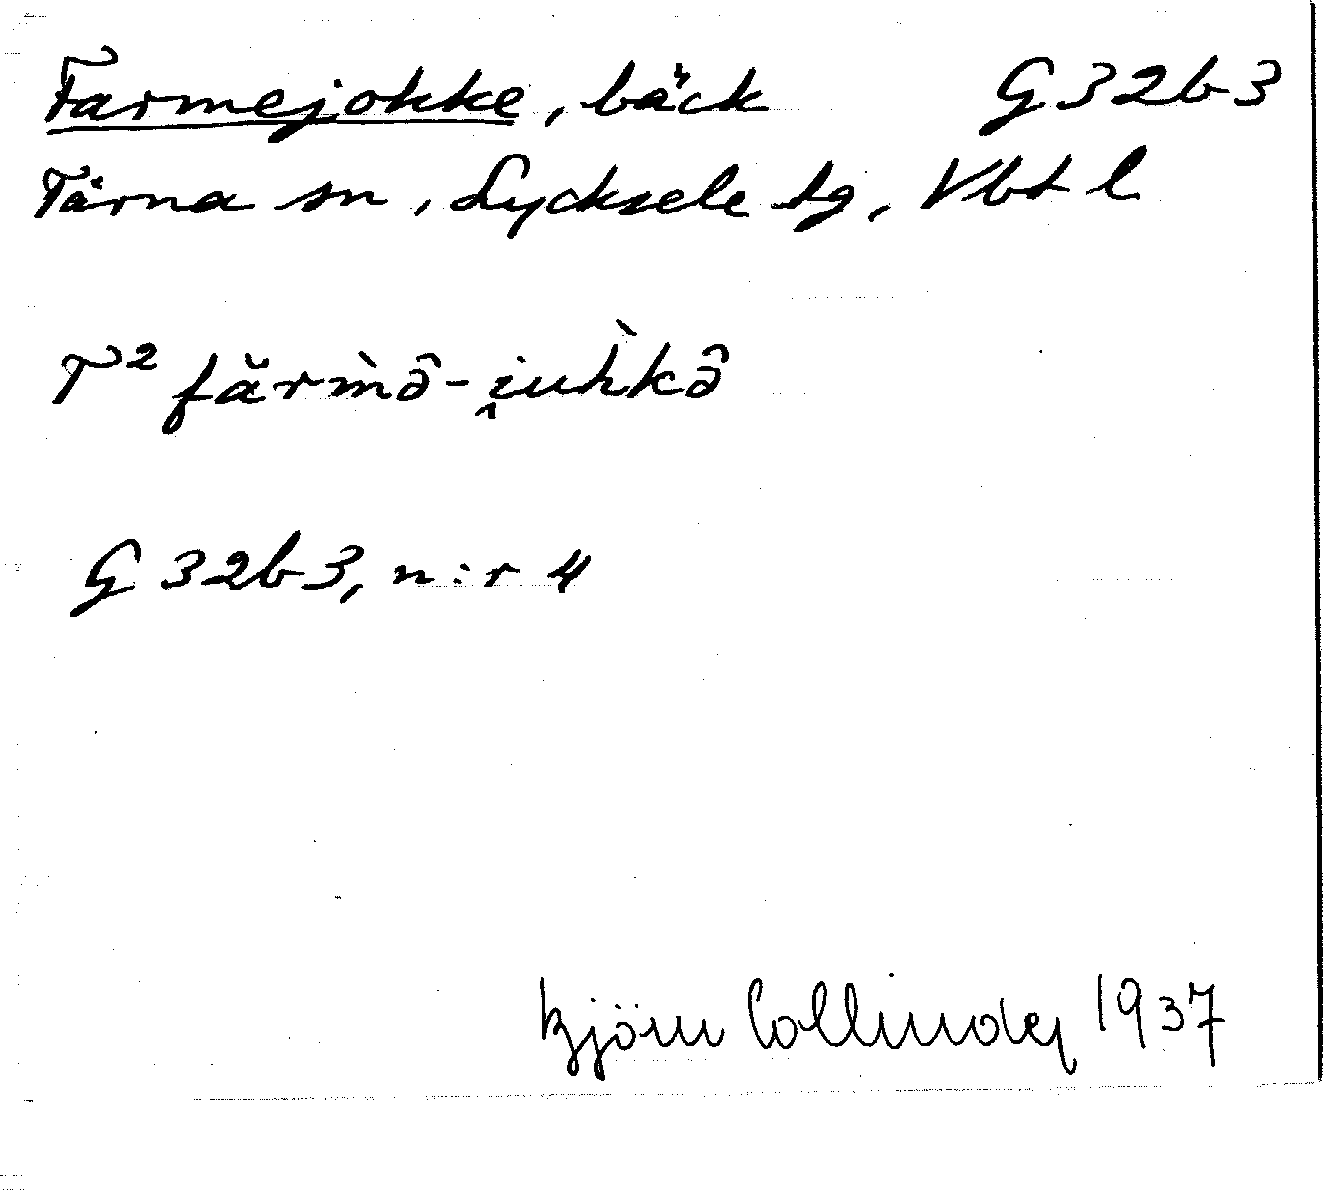 Farmejokke, bäck G32b3
Tärna sn, Lycksele tg, Vbt l
T² fărm̀ə̂-i̯uh̀kə̂
G 32b3, n:r 4
Björn Collinder 1937